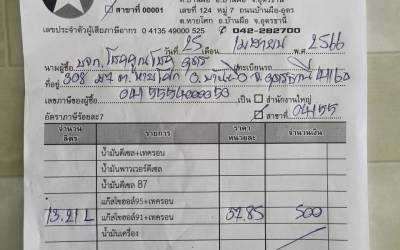 สาขาที่ 00001
ต.หายโศก อ.บ้านผือ จ.อุดรธานี
เลขที่ 124 หมู่ 7 ถนนบ้านผือ-อุดร
ต.หายโศก อ.บ้านผือ จ.อุดรธานี
เลขประจำตัวผู้เสียภาษีอากร 0 4135 49000 525 ☎ 042-282700
วันที่ 25 เดือน เมษายน พ.ศ. 2566
นามผู้ซื้อ ทะเบียนรถ
ที่อยู่ 308 ม.7 ต.หายโศก อ.บ้านผือ จ.อุดรธานี 41160
เลขภาษีของผู้ซื้อ เป็น สำนักงานใหญ่
อัตราภาษีร้อยละ7 สาขาที่ 04155
จำนวนลิตร รายการ ราคาหน่วยละ จำนวนเงิน
น้ำมันดีเซล+เทครอน
น้ำมันพาวเวอร์ดีเซล
น้ำมันดีเซล B7
แก๊สโซฮอล์95+เทครอน
13.21 L แก๊สโซฮอล์91+เทครอน 37.85 500
น้ำมันเครื่อง